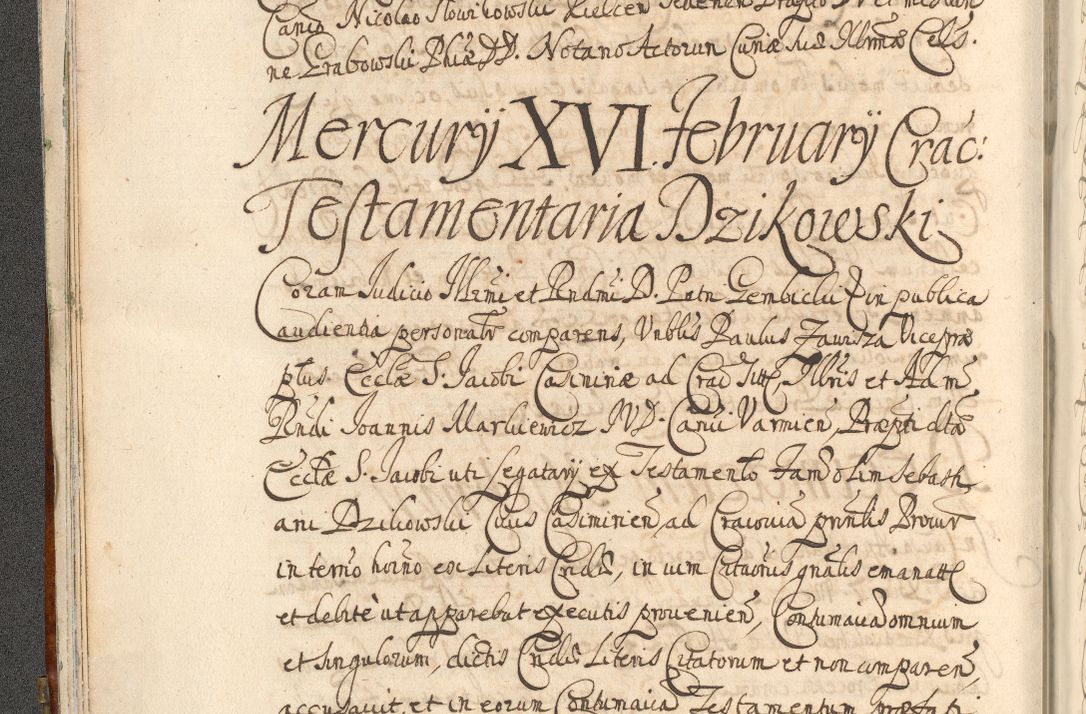 Canco Nicolao Słowikowski Kielcen
ne Grabowski Phiæ DD. Notario Actorum Curiæ suæ Illrmæ Cels.
Mercurij XVI. February Crac:
Testamentaria Dzikowski
Coram Judicio Illrmi et Rndmi D. Petri Gembicki E in publica
audientia personalr comparens, Vnblis Paulus Zawisza Vicepræ
ptus Ecclæ S. Jacobi Casimiriæ ad Crac Illris et Adm
Rndi Joannis Markiewicz JVD. Canci Varmien, Præpti dtæ
Ecclæ S. Jacobi uti Legatarij ex Testamento Fam olim Sebasti
ani Dzikowski Civis Casimirien ad Cracovia pnntis Procur
in termo horno ex Literis Cndis, in vim Citaonis gnalis emanatt
et debite ut apparebat executis provenien, Contumacia omnium
et singulorum, dictis Cndis Literis Citatorum et non comparen
accusavit, et in eorum Contumacia Testamentum præfati